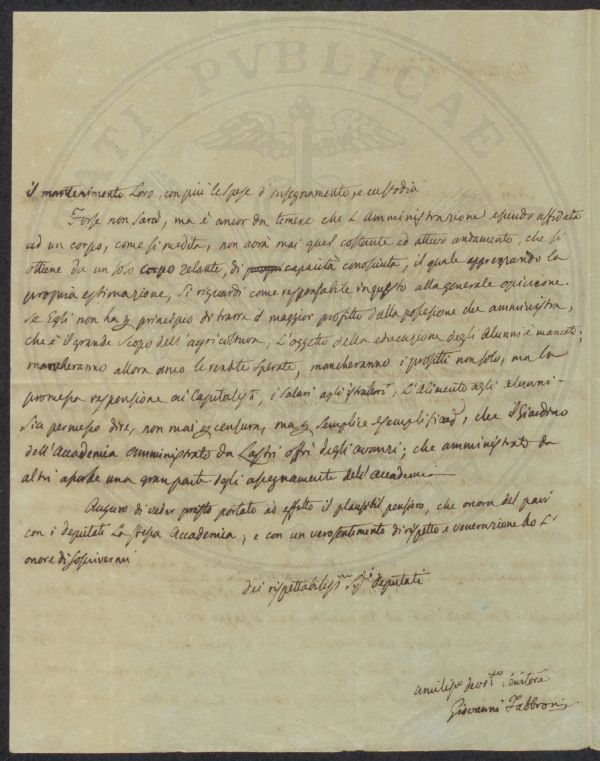 il mantenimento Loro, con più le spese d'insegnamento, e custodia
Forse non sarà, ma è ancor da temere che L'Amministrazione essendo affidata
ad un corpo, come si medita, non avrà mai quel costante ed attivo andamento, che si
ottiene da un solo capo zelante, di capacità conosciuta, il quale apprezzando la
propria estimazione, si riguardi come responsabile in questo alla generale opinione.
Se Egli non ha p principio di trarre il maggior profitto dalla possessione che amministra,
che è il grande scopo dell'agricoltura, L'oggetto della educazione degli Alunni è mancato;
mancheranno allora anco le rendite sperate, mancheranno i profitti non solo, ma la
promessa responsione ai Capitalisti, i salari agli istrutori, L'Alimento agli alunni.
Sia permesso dire, non mai p censura, ma p semplice esemplificaz, che il Giardino
dell'Accademia amministrato da Lastri offrì degli avanzi; che amministrato da
altri assorbe una gran parte degli assegnamenti dell'Accademia
Auguro di veder presto portato ad effetto il plausibil pensiero, che onora del pari
con i deputati La stessa Accademia; e con un vero sentimento di rispetto e venerazione ho L'
onore di soscrivermi
dei rispettabiliss.mi Sig.ri deputati
umiliss.o devot.o servitore
Giovanni Fabbroni
PVBLICAE